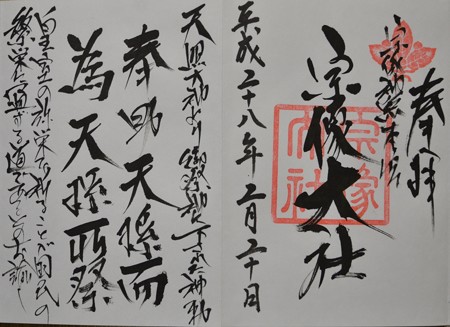 奉拝
宗像大社
宗像大社
平成二十八年二月二十日
天照大神より御祭神に下された神勅
奉助天孫而
為天孫所祭
皇室の弥栄を祈ることが国民の
繁栄に通ずる道 のお諭し